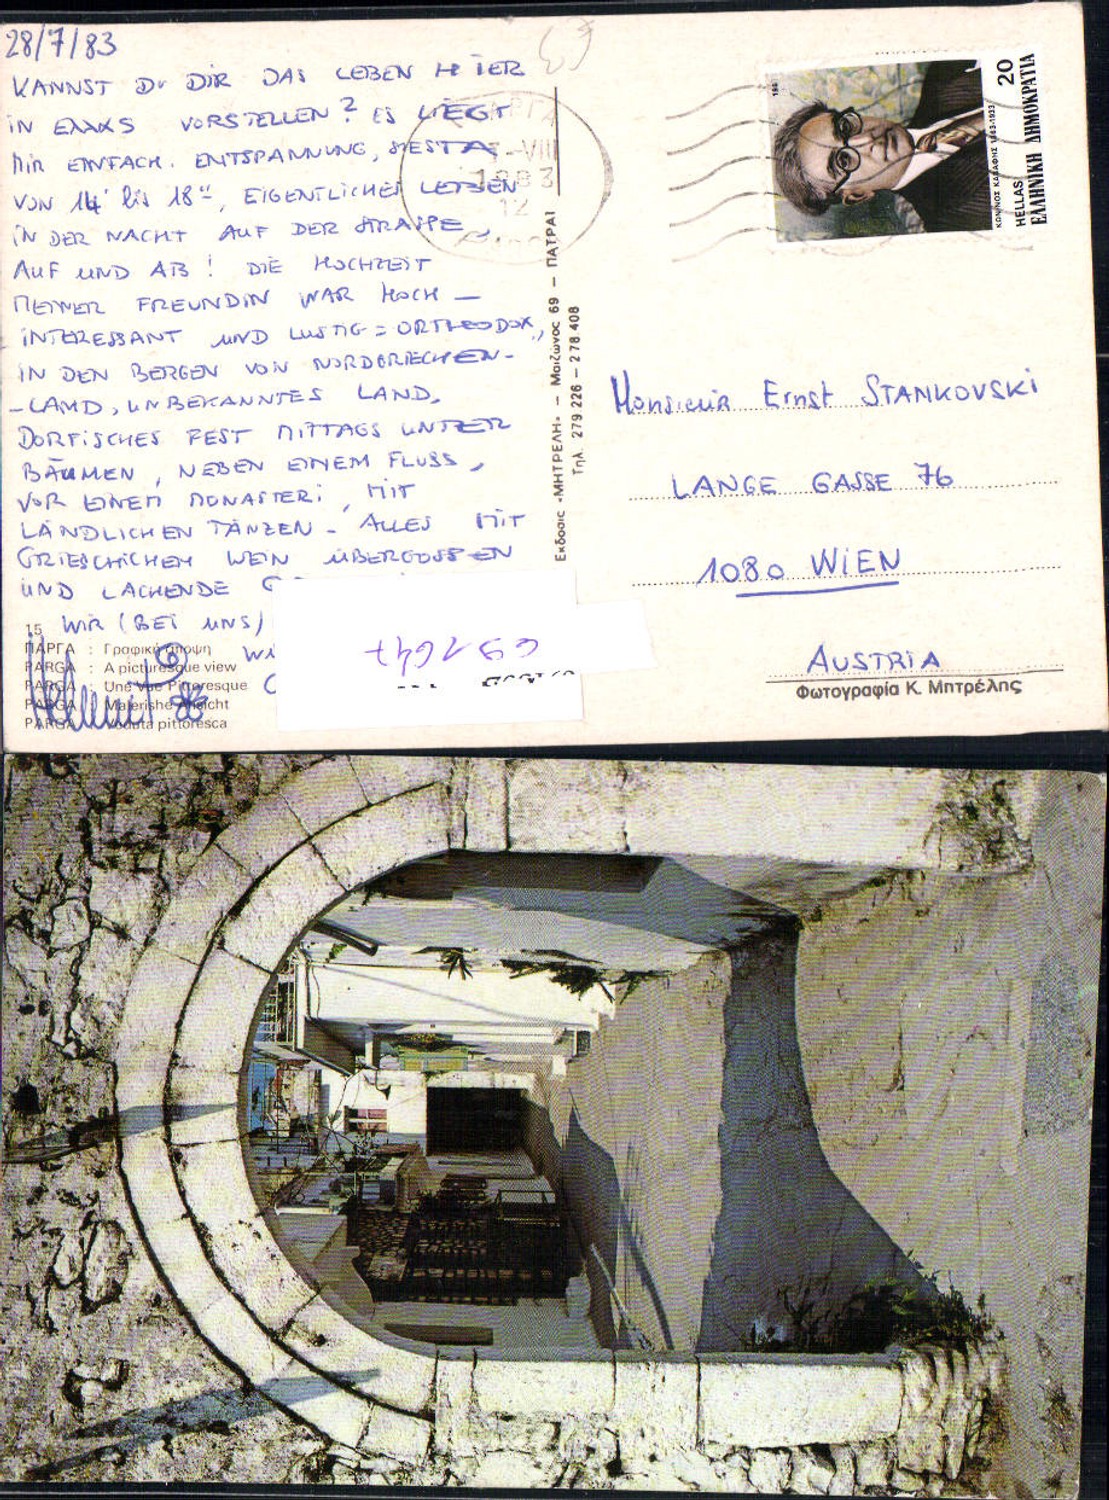 28/7/83
KANNST DU DIR DAS LEBEN HIER
IN ΕΛΛΑΣ VORSTELLEN? ES LIEGT
MIR EINFACH. ENTSPANNUNG, SIESTA
VON 14 bis 18, EIGENTLICHES LEBEN
IN DER NACHT AUF DER STRASSE,
AUF UND AB! DIE HOCHZEIT
MEINER FREUNDIN WAR HOCH –
INTERESSANT UND LUSTIG = ORTHODOX,
IN DEN BERGEN VON NORDGRIECHEN-
-LAND, UNBEKANNTES LAND,
DORFISCHES FEST MITTAGS UNTER
BÄUMEN, NEBEN EINEM FLUSS,
VOR EINEM MONASTERI, MIT
LÄNDLICHEN TÄNZEN – ALLES MIT
GRIECHISCHEM WEIN ÜBERGOSSEN
UND LACHENDE
WIR (BEI UNS)
15
ΠΑΡΓΑ : Γραφική άποψη
PARGA : A picturesque view
PARGA : Une Vue Pittoresque
PARGA : Malerishe Ansicht
PARGA : Veduta pittoresca
ΠΑΡΓΑ
VIII
1983
12
Εκδοσις «ΜΗΤΡΕΛΗ» – Μαιζώνος 69 – ΠΑΤΡΑΙ
Τηλ. 279 226 – 278.408
ΚΩΝ/ΝΟΣ ΚΑΒΑΦΗΣ 1863-1933
HELLAS 20
ΕΛΛΗΝΙΚΗ ΔΗΜΟΚΡΑΤΙΑ
Monsieur Ernst STANKOVSKI
LANGE GASSE 76
1080 WIEN
AUSTRIA
Φωτογραφία Κ. Μητρέλης